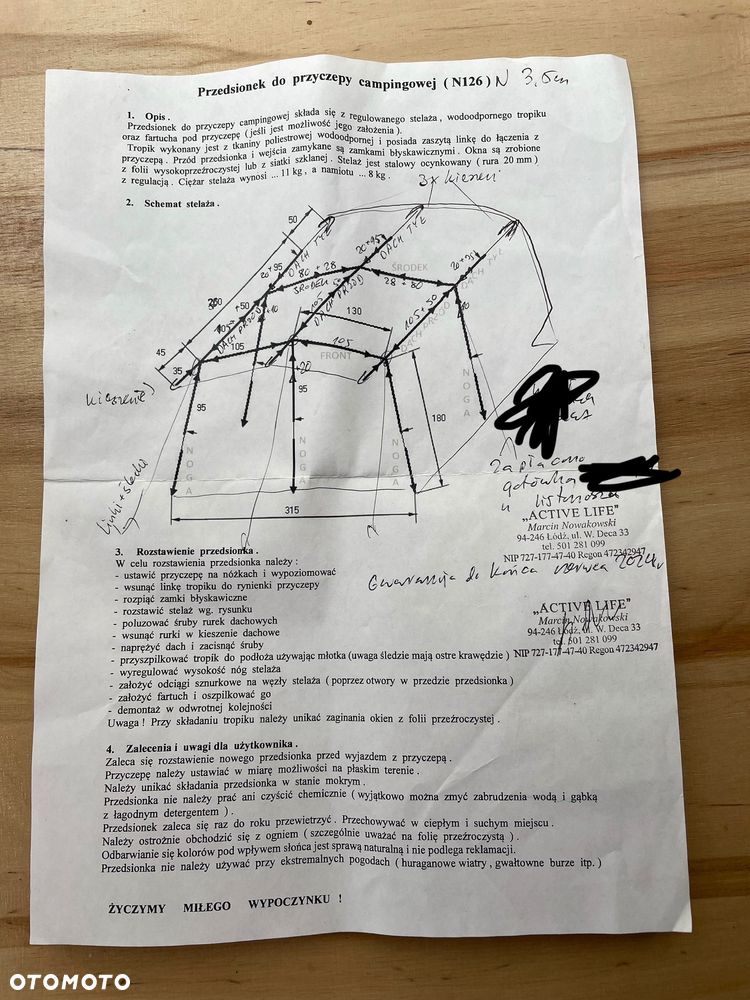 Przedsionek do przyczepy campingowej ( N126 ) N
1. Opis .
Przedsionek do przyczepy campingowej składa się z regulowanego stelaża , wodoodpornego tropiku
oraz fartucha pod przyczepę ( jeśli jest możliwość jego założenia ) .
Tropik wykonany jest z tkaniny poliestrowej wodoodpornej i posiada zaszytą linkę do łączenia z
przyczepą . Przód przedsionka i wejścia zamykane są zamkami błyskawicznymi . Okna są zrobione
z folii wysokoprzeźroczystej lub z siatki szklanej . Stelaż jest stalowy ocynkowany ( rura 20 mm )
z regulacją . Ciężar stelaża wynosi ... 11 kg , a namiotu ... 8 kg .
3x kieszeń
2. Schemat stelaża .
50
DACH TYŁ
DACH TYŁ
20+95
20+95
80 + 28
ŚRODEK
ŚRODEK
28 + 80
DACH PRZÓD
DACH PRZÓD
105+50
DACH PRZÓD
130
105
105
FRONT
45
35
+20
95
95
180
NOGA
NOGA
NOGA
NOGA
315
kieszenie
linki + śledzie
zapłacono
gotówką
u listonosza
„ACTIVE LIFE"
Marcin Nowakowski
94-246 Łódź, ul. W. Deca 33
tel. 501 281 099
NIP 727-177-47-40 Regon 472342947
Gwarancja do końca czerwca 2024r
3. Rozstawienie przedsionka .
W celu rozstawienia przedsionka należy :
- ustawić przyczepę na nóżkach i wypoziomować
- wsunąć linkę tropiku do rynienki przyczepy
- rozpiąć zamki błyskawiczne
- rozstawić stelaż wg. rysunku
- poluzować śruby rurek dachowych
- wsunąć rurki w kieszenie dachowe
- naprężyć dach i zacisnąć śruby
- przyszpilkować tropik do podłoża używając młotka (uwaga śledzie mają ostre krawędzie )
- wyregulować wysokość nóg stelaża
- założyć odciągi sznurkowe na węzły stelaża ( poprzez otwory w przedzie przedsionka )
- założyć fartuch i oszpilkować go
- demontaż w odwrotnej kolejności
Uwaga ! Przy składaniu tropiku należy unikać zaginania okien z folii przeźroczystej .
„ACTIVE LIFE"
Marcin Nowakowski
94-246 Łódź, ul. W. Deca 33
tel. 501 281 099
NIP 727-177-47-40 Regon 472342947
4. Zalecenia i uwagi dla użytkownika .
Zaleca się rozstawienie nowego przedsionka przed wyjazdem z przyczepą .
Przyczepę należy ustawiać w miarę możliwości na płaskim terenie .
Należy unikać składania przedsionka w stanie mokrym .
Przedsionka nie należy prać ani czyścić chemicznie ( wyjątkowo można zmyć zabrudzenia wodą i gąbką
z łagodnym detergentem ) .
Przedsionek zaleca się raz do roku przewietrzyć . Przechowywać w ciepłym i suchym miejscu .
Należy ostrożnie obchodzić się z ogniem ( szczególnie uważać na folię przeźroczystą ) .
Odbarwianie się kolorów pod wpływem słońca jest sprawą naturalną i nie podlega reklamacji.
Przedsionka nie należy używać przy ekstremalnych pogodach ( huraganowe wiatry , gwałtowne burze itp. )
ŻYCZYMY MIŁEGO WYPOCZYNKU !
OTOMOTO